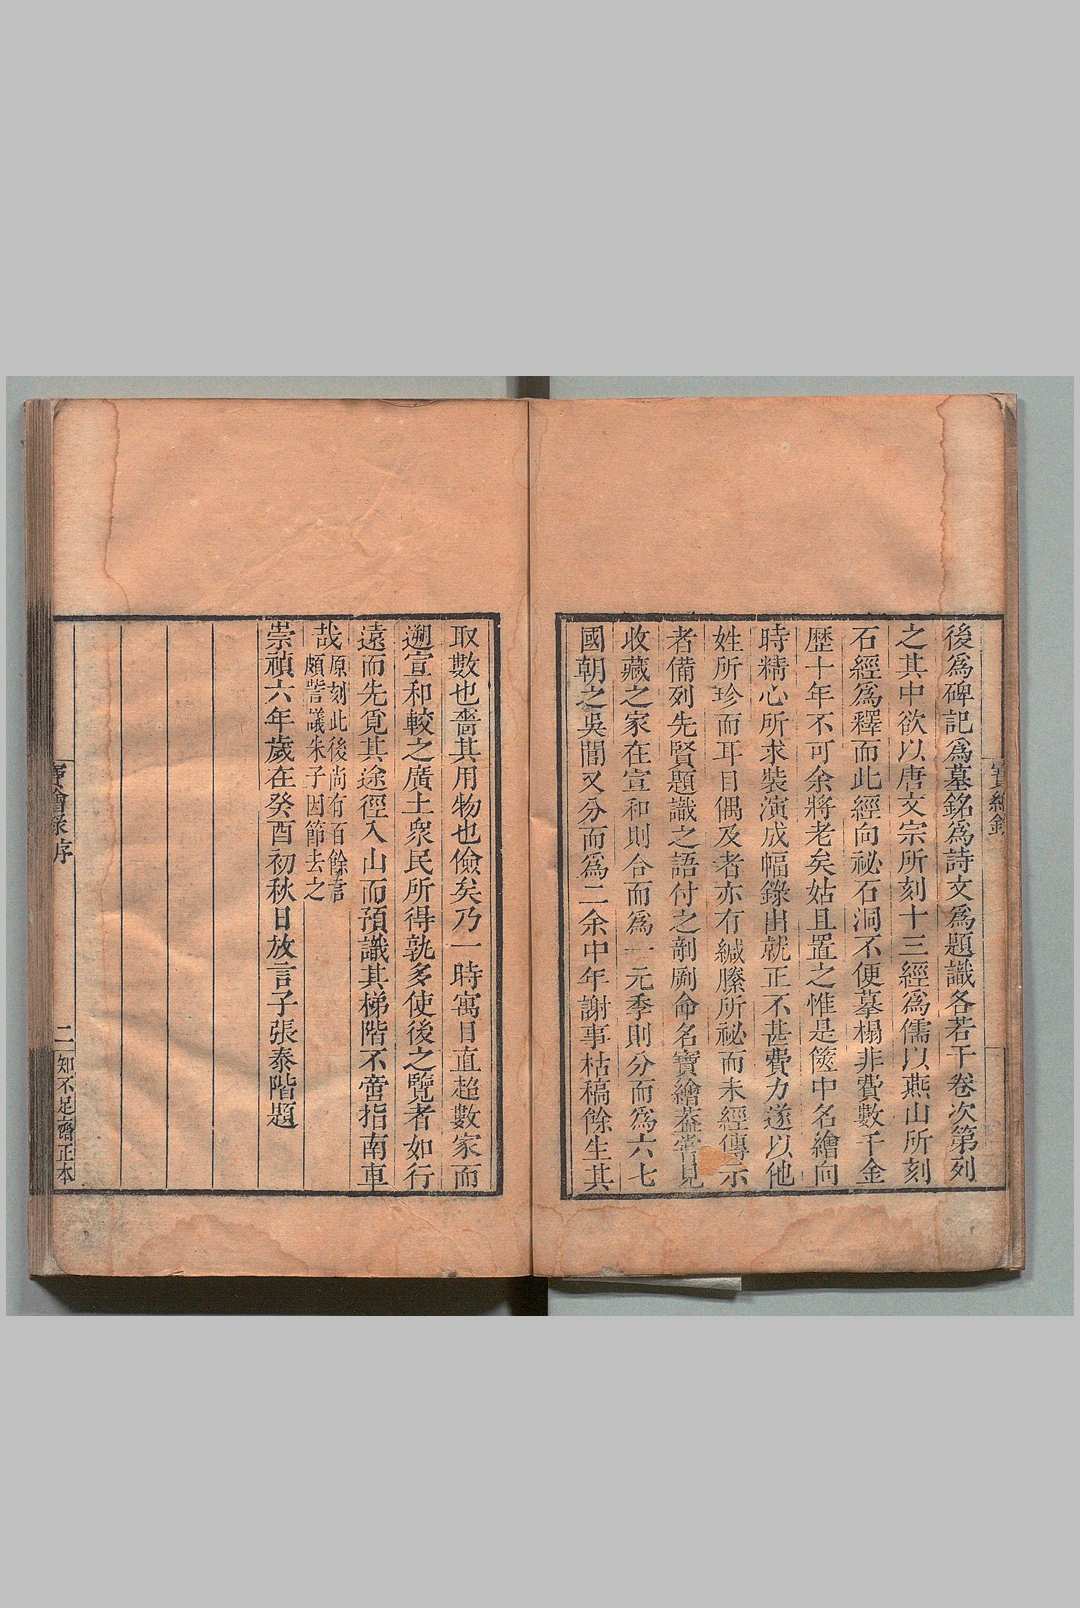 後爲碑記爲墓銘爲詩文爲題識各若干卷次第列
之其中欲以唐文宗所刻十三經爲儒以燕山所刻
石經爲釋而此經向祕石洞不便摹搨非費數千金
歷十年不可余將老矣姑且置之惟是篋中名繪向
時精心所求裝潢成幅錄出就正不甚費力遂以他
姓所珍而耳目偶及者亦有緘縢所祕而未經傳示
者備列先賢題識之語付之剞劂命名寶繪葢嘗見
收藏之家在宣和則合而爲一元季則分而爲六七
國朝之吳閶又分而爲二余中年謝事枯稿餘生其
寶繪錄
取數也嗇其用物也儉矣乃一時寓目直超數家而
遡宣和較之廣土衆民所得孰多使後之覽者如行
遠而先覓其途徑入山而預識其梯階不啻指南車
哉原刻此後尚有百餘言
頗訾議朱子因節去之
崇禎六年歲在癸酉初秋日放言子張泰階題
寶繪錄序
二
知不足齋正本